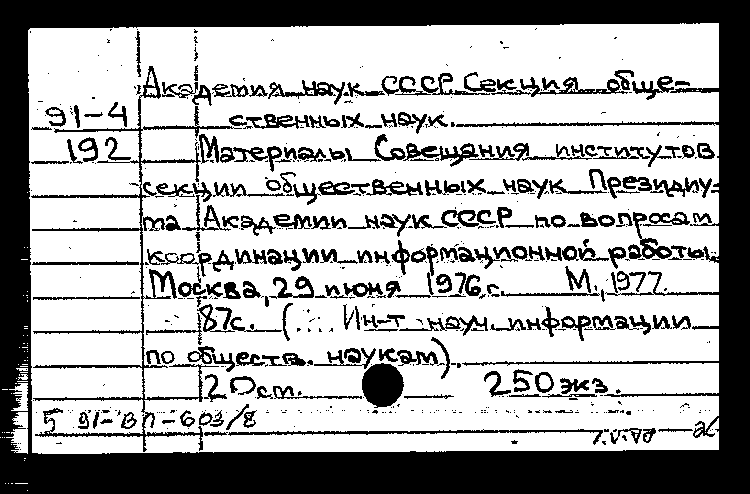 Академия наук СССР. Секция обще-
91-4 ственных наук.
192 Материалы Совещания институтов
секции общественных наук Президиу-
ма Академии наук СССР по вопросам
координации информационной работы.
Москва, 29 июня 1976 г. М., 1977.
87с. (... Ин-т науч. информации
по обществ. наукам).
20 см. 250 экз.
5 91-ВП-603/8